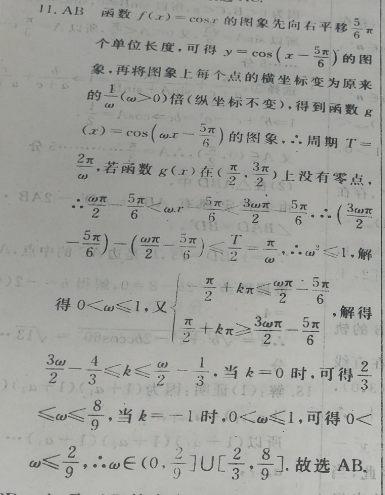 11. AB 函数 f(x)=cosx 的图象先向右平移 5/6 π
个单位长度,可得 y=cos(x−5π/6)的图
象,再将图象上每个点的横坐标变为原来
的 1/ω (ω>0)倍(纵坐标不变),得到函数 g
(x)=cos(ωx−5π/6)的图象,∴周期 T=
2π/ω,若函数 g(x)在(π/2,3π/2)上没有零点,
∴ωπ/2−5π/6<ωx−5π/6<3ωπ/2−5π/6,∴(3ωπ/2
−5π/6)−(ωπ/2−5π/6)≤T/2=π/ω,∴ω²≤1,解
得 0<ω≤1,又{−π/2+kπ≤ωπ/2−5π/6
π/2+kπ≥3ωπ/2−5π/6,解得
3ω/2−4/3≤k≤ω/2−1/3,当 k=0 时,可得 2/3
≤ω≤8/9,当 k=−1 时,0<ω≤1,可得 0<
ω≤2/9,∴ω∈(0,2/9]∪[2/3,8/9].故选 AB.